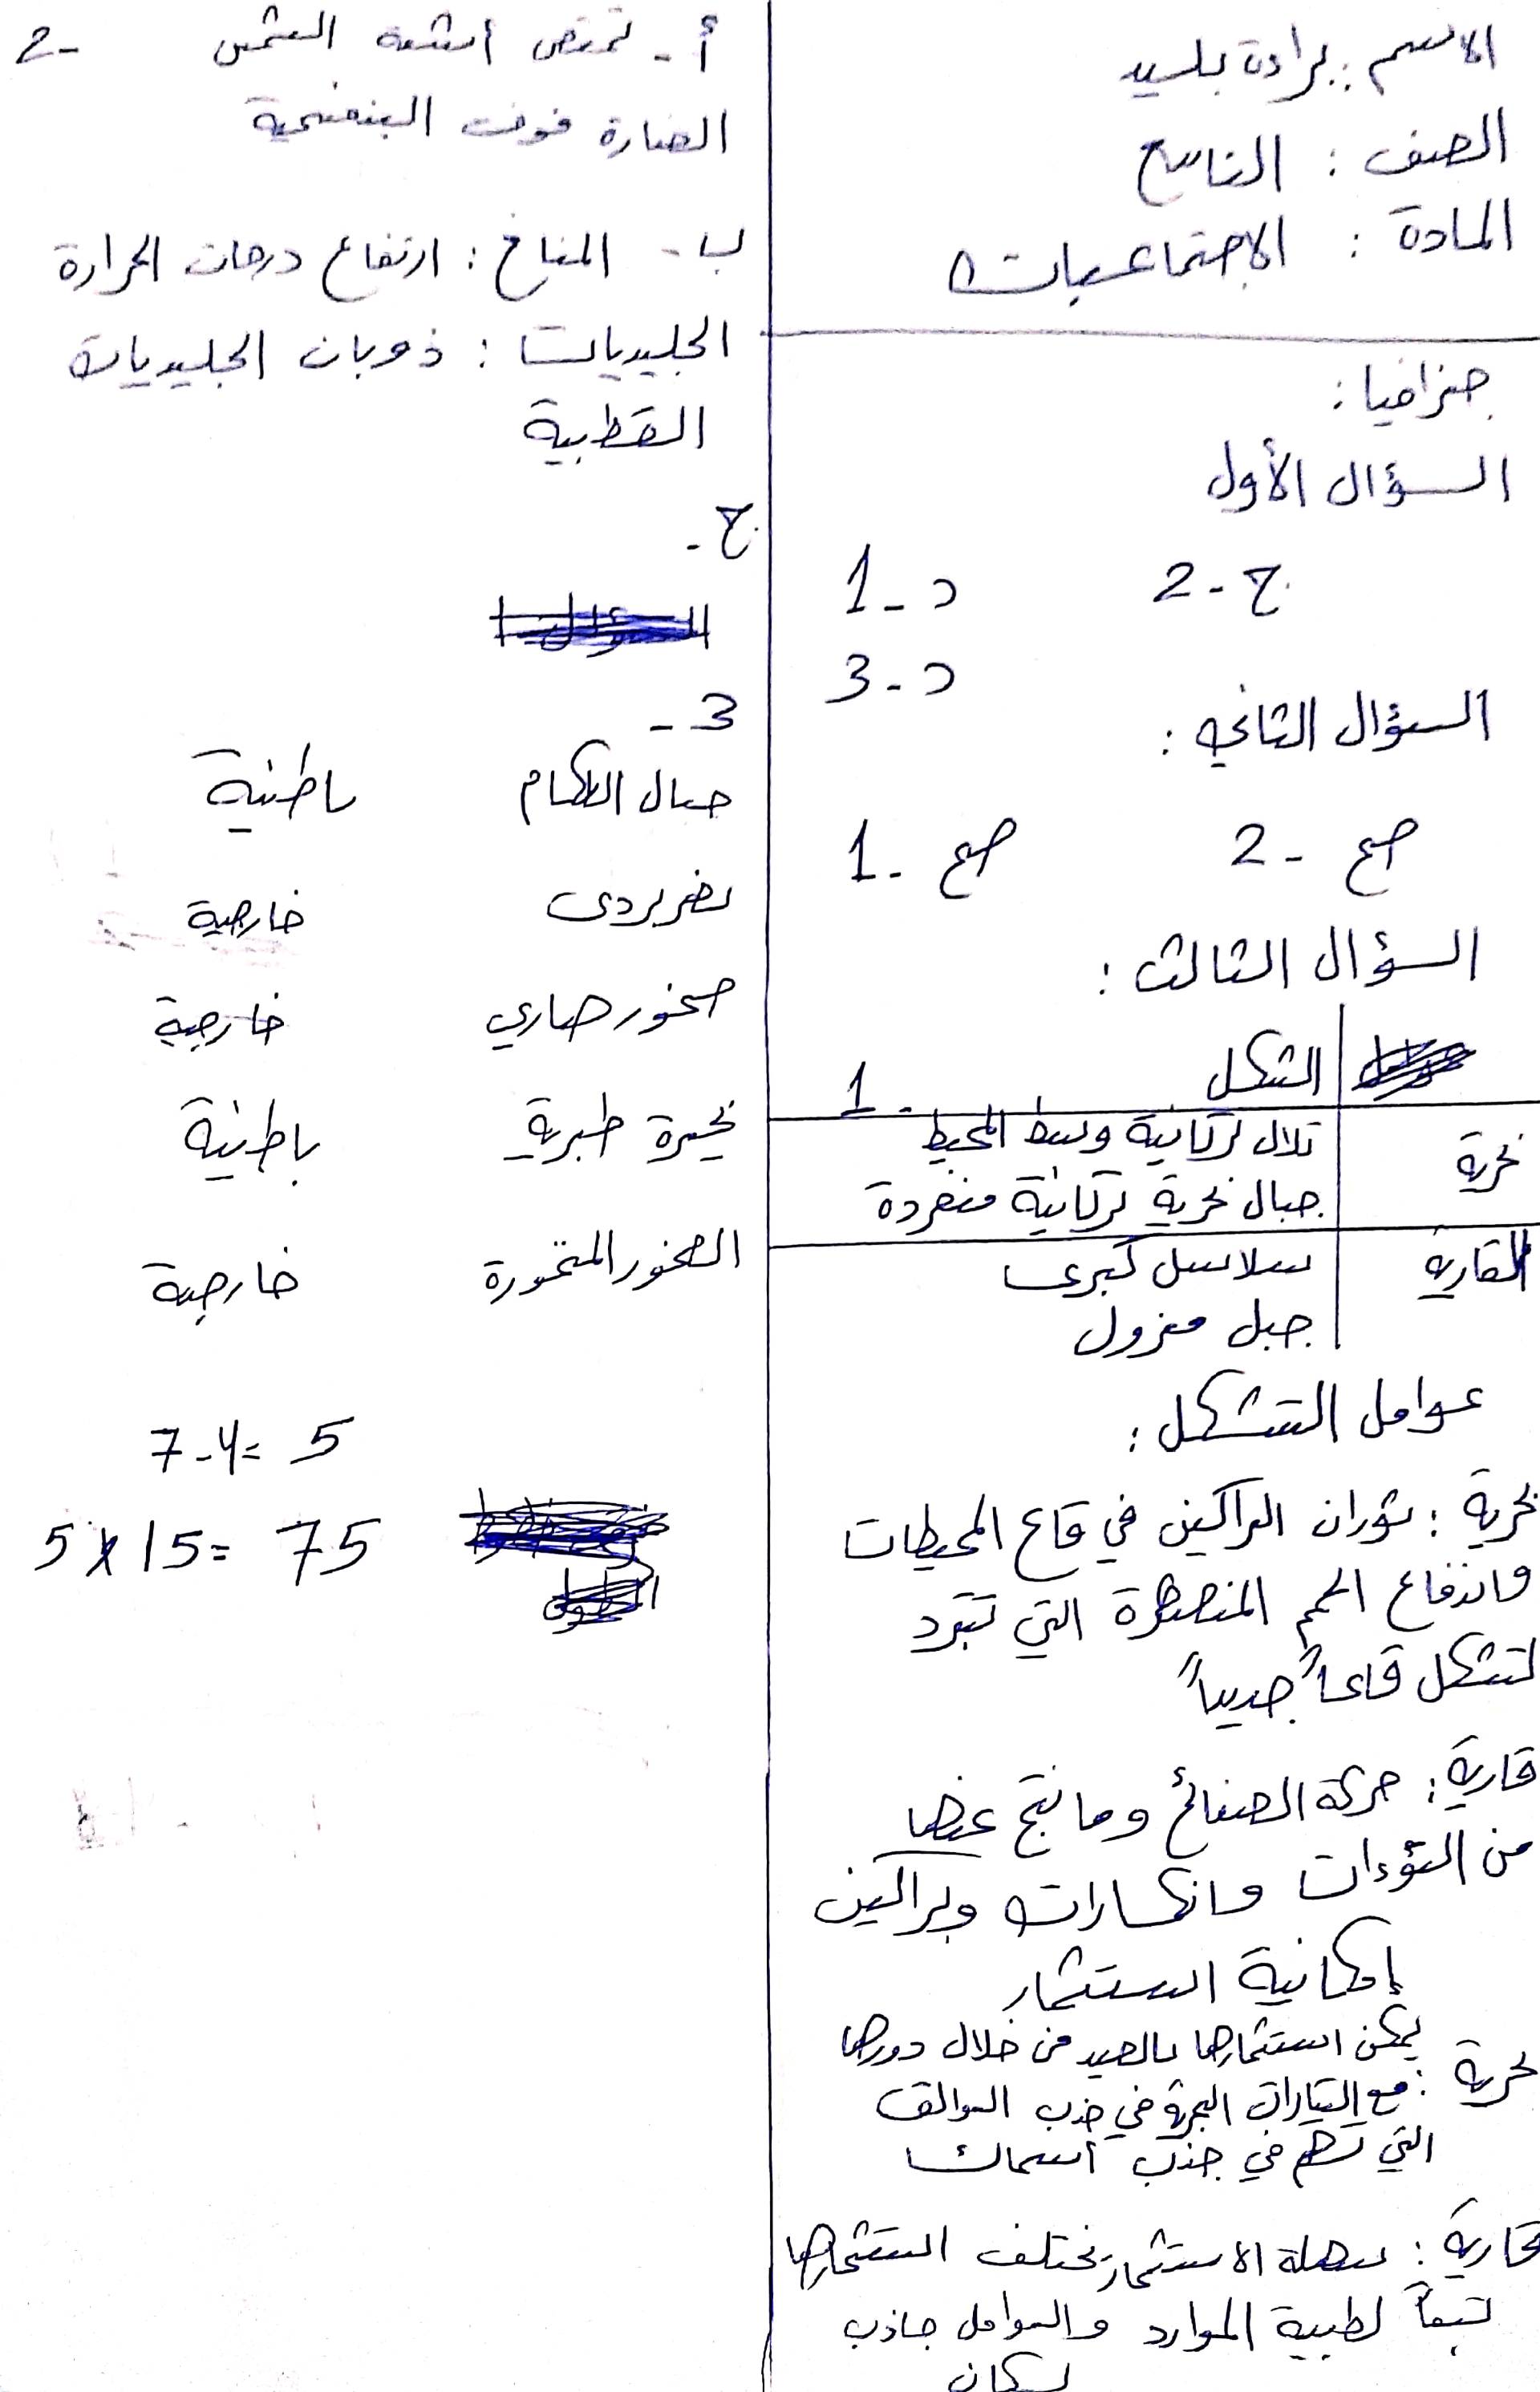 الاسم: براءة بلسيد
الصف: التاسع
المادة: الاجتماعيات
جغرافيا:
السؤال الأول
1 - د 2 - ج
3 - د
السؤال الثاني:
1 - صح 2 - صح
السؤال الثالث:
1 - الشكل
بحرية تلال بركانية وسط المحيط
جبال بحرية بركانية منفردة
القارية سلاسل كبرى
جبل معزول
عوامل التشكل:
بحرية: ثوران البراكين في قاع المحيطات
واندفاع الحمم المنصهرة التي تتبرد
لتشكل قاعاً جديداً
قارية: حركة الصفائح وما نتج عنها
من التؤءات وانكسارات وبراكين
إمكانية استثمار
يمكن استثمارها بالصيد من خلال دورها
بحرية: مع التيارات البحرية في جذب العوالق
التي تسهم في جذب أسماك
قارية: سهلة الاستثمار تختلف استثمارها
تبعاً لطبية الموارد والعوامل جاذب
لسكان
2- أ- تمتص أشعة الشمس
الضارة فوق البنفسجية
ب- المناخ: ارتفاع درجات الحرارة
الجليديات: ذوبان الجليديات
القطبية
ج-
3 -
جبال اللكام باطنية
نهر بردى خارجية
صخور صاري خارجية
بحيرة طبرية باطنية
الصخور المتحورة خارجية
7-4= 5
5x15= 75